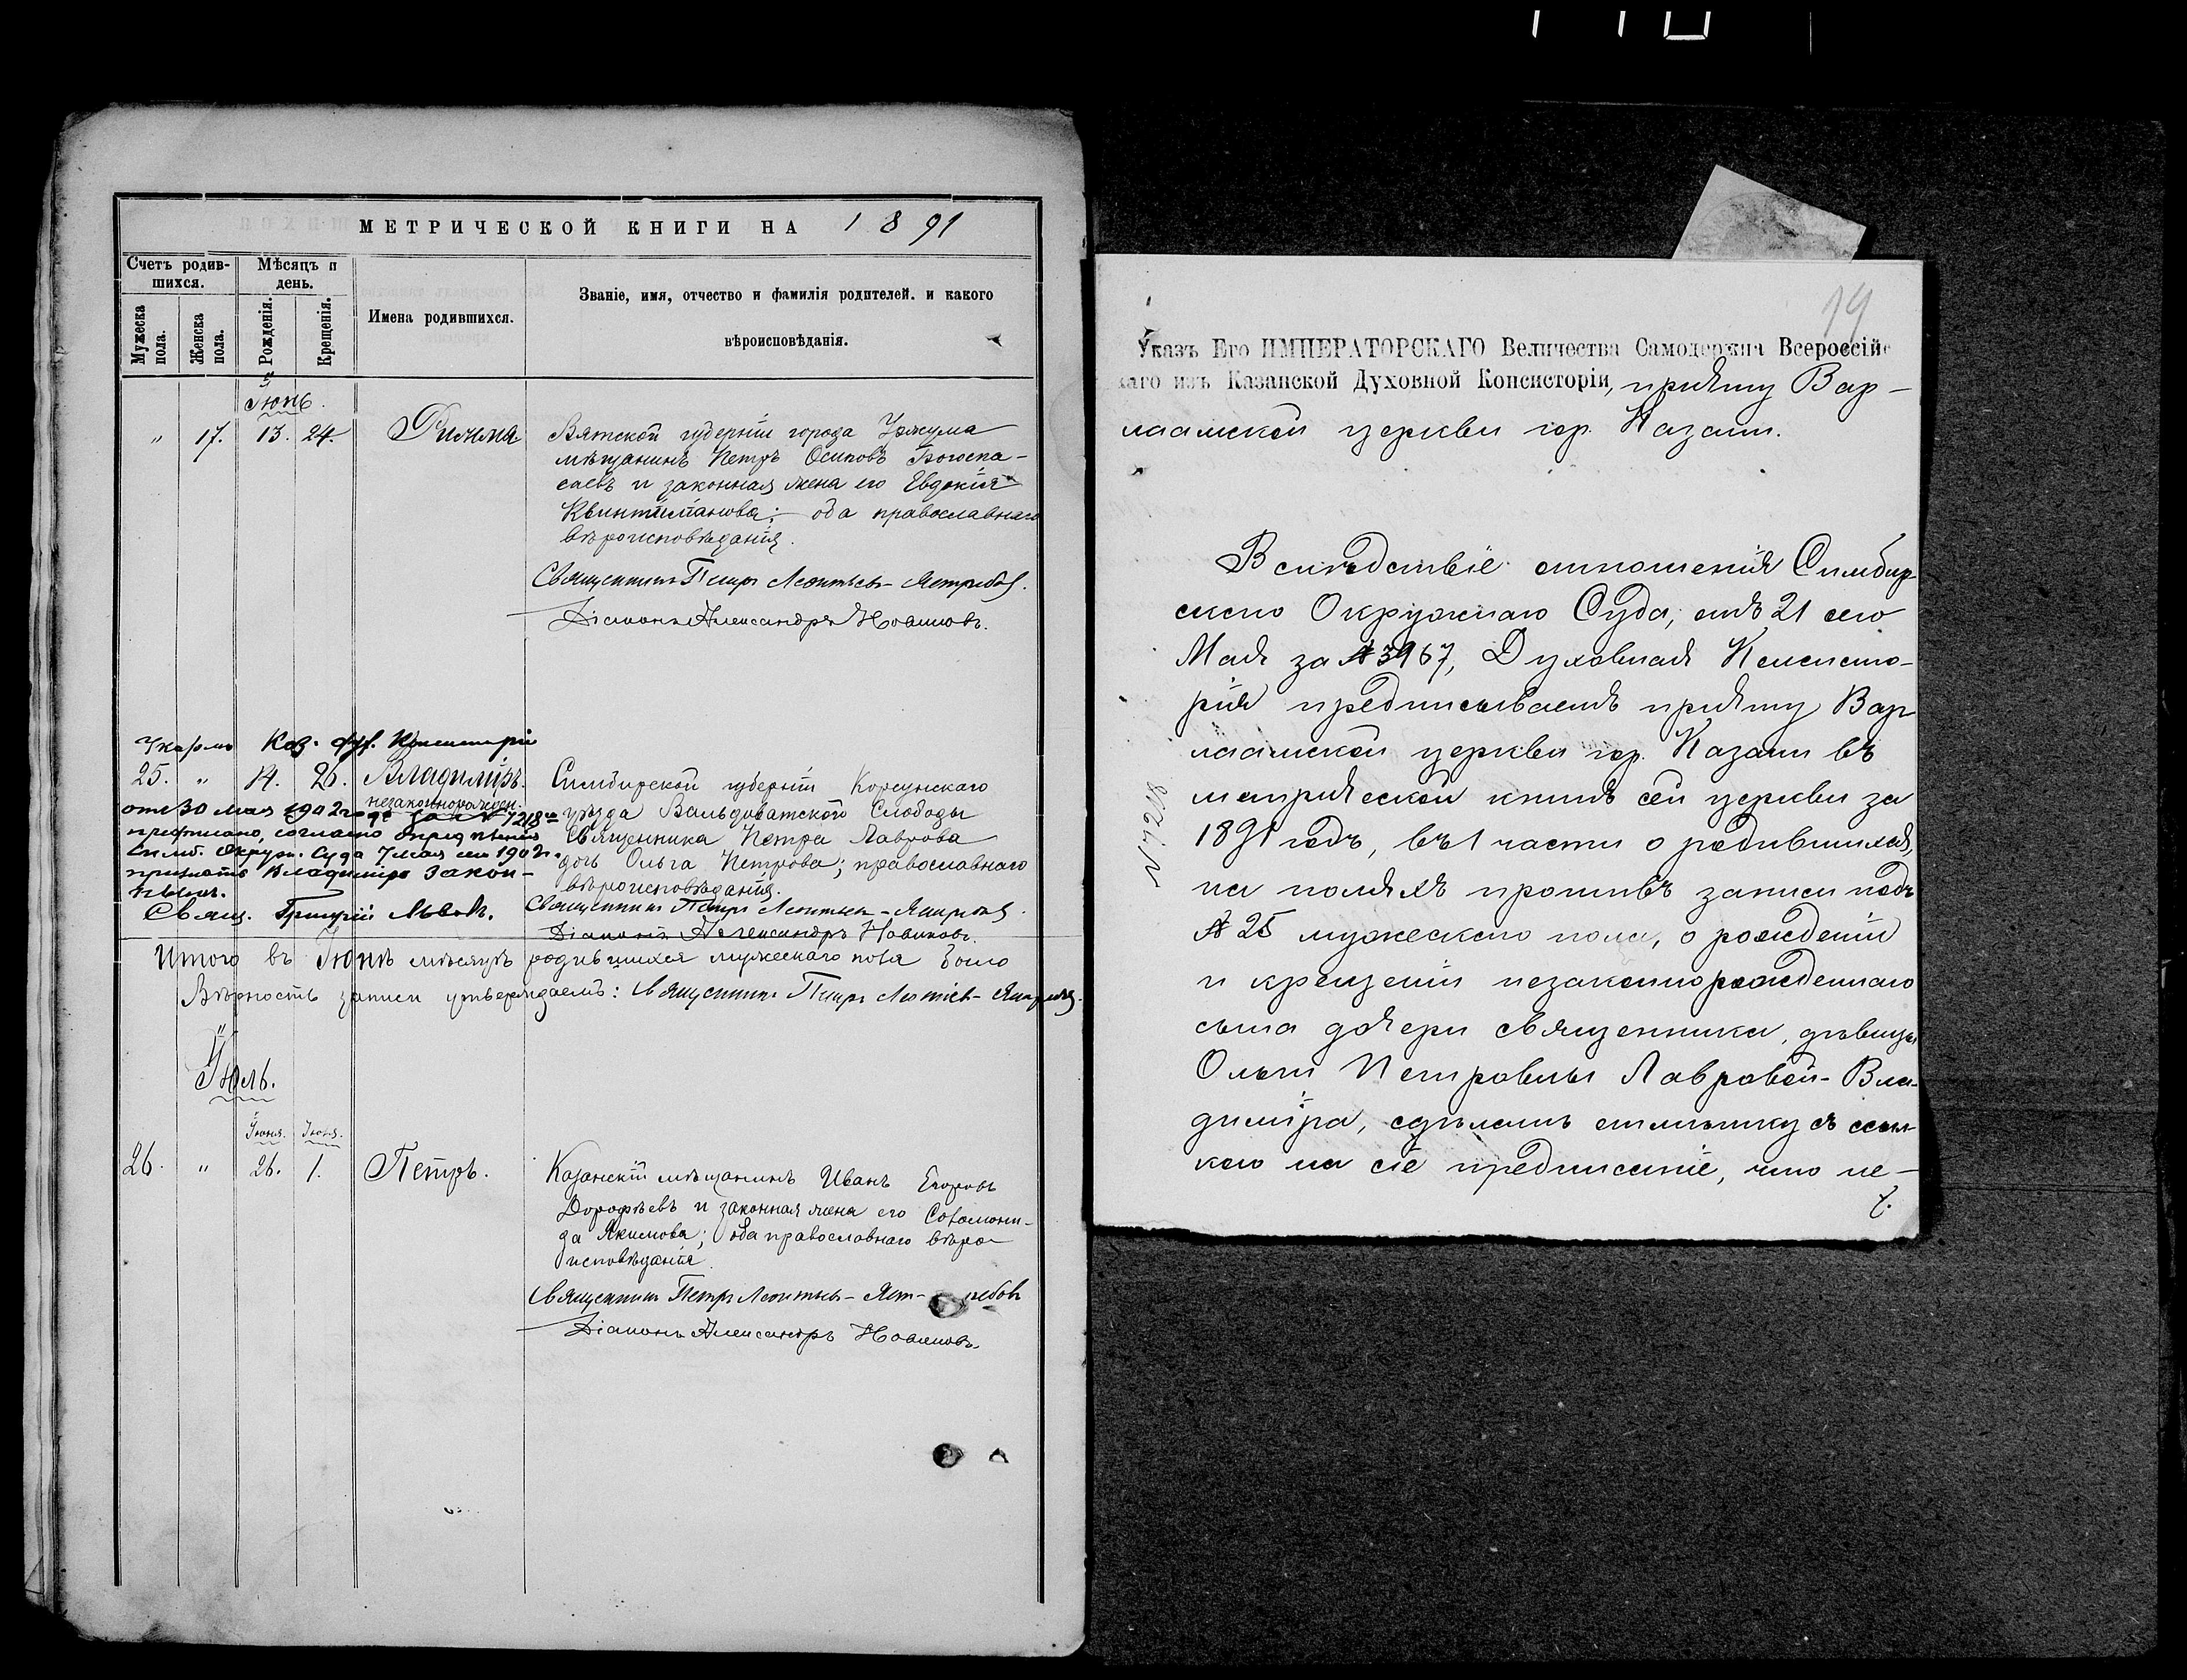 МЕТРИЧЕСКОЙ КНИГИ НА 1891
Счетъ родив-
шихся.
Мѣсяцъ и
день.
Мужеска
пола.
Женска
пола.
Рожденія.
Крещенія.
Имена родившихся.
Званіе, имя, отчество и фамилія родителей. и какого
вѣроисповѣданія.
Іюнь.
" 17. 13. 24. Римма
Вятской губерніи города Уржума
мѣщанинъ Петръ Осиповъ Богоспа-
саевъ и законная жена его Евдокія
оба православнаго
вѣроисповѣданія.
Священникъ Петръ Леонтьевъ-Ястребовъ.
Діаконъ Александръ Новиковъ.
Указомъ Каз. Дух. Консисторіи
25. " 14. 26. Владиміръ.
незаконнорожден.
отъ 30 мая 1902 года за № 7218мъ
предписано, согласно опредѣленію
Симб. Окруж. Суда 7 мая сего 1902 г.
признать Владиміра закон-
нымъ.
Свящ. Григорій Львовъ.
Симбирской губерніи Корсунскаго
уѣзда Вальдиватской Слободы
Священника Петра Лаврова
дочь Ольга Петрова; православнаго
вѣроисповѣданія.
Священникъ Петръ Леонтьевъ-Ястребовъ.
Діаконъ Александръ Новиковъ.
Итого въ Іюнѣ мѣсяцѣ родившихся мужескаго пола было
Вѣрность записи утверждаемъ: Священникъ Петръ Леонтьевъ-Ястребовъ.
Іюль.
Іюня. Іюля.
26. " 26. 1. Петръ.
Казанскій мѣщанинъ Иванъ Егоровъ
Дорофѣевъ и законная жена его Соломони-
да Якимова; оба православнаго вѣро-
исповѣданія.
Священникъ Петръ Леонтьевъ-Ястребовъ
Діаконъ Александръ Новиковъ.
19
Указъ Его ИМПЕРАТОРСКАГО Величества Самодержца Всероссійс
каго изъ Казанской Духовной Консисторіи, причту Вар-
лаамской церкви гор. Казани.
Вслѣдствіе отношенія Симбир-
скаго Окружнаго Суда, отъ 21 сего
Мая за № 3967, Духовная Консисто-
рія предписываетъ причту Вар-
лаамской церкви гор. Казани въ
метрической книгѣ сей церкви за
1891 годъ, въ 1 части о родившихся,
на поляхъ противъ записи подъ
№ 25 мужескаго пола, о рожденіи
и крещеніи незаконнорожденнаго
сына дочери священника, дѣвицы
Ольги Петровны Лавровой-Вла-
диміра, сдѣлать отмѣтку съ ссыл-
кою на сіе предписаніе, что не-
№ 7218